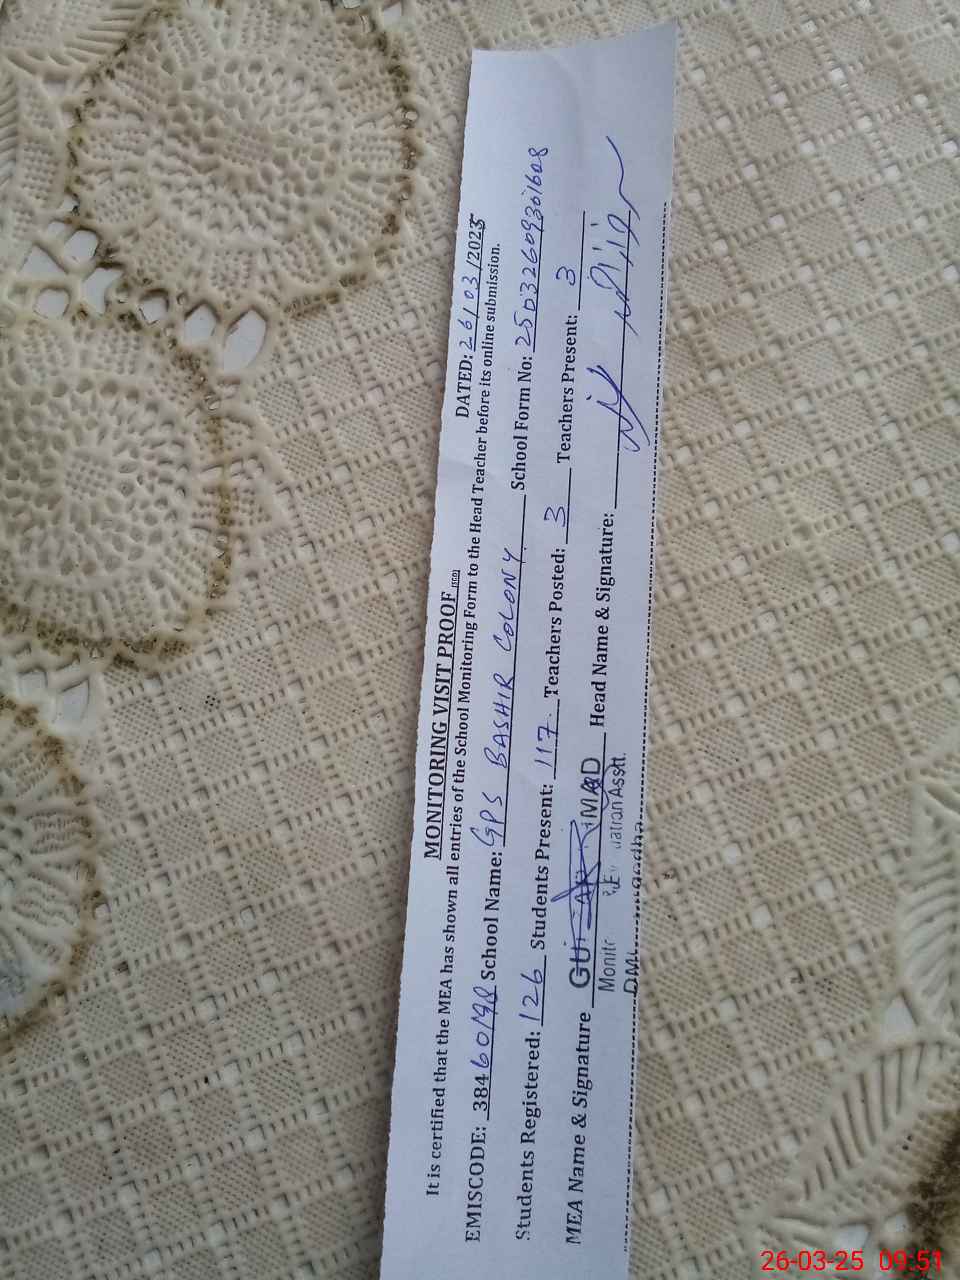 MONITORING VISIT PROOF
DATED: 26/03/2025
It is certified that the MEA has shown all entries of the School Monitoring Form to the Head Teacher before its online submission.
EMISCODE: 38460198 School Name: GPS BASHIR COLONY School Form No: 25032609301608
Students Registered: 126 Students Present: 117 Teachers Posted: 3 Teachers Present: 3
MEA Name & Signature Head Name & Signature:
26-03-25 09:51